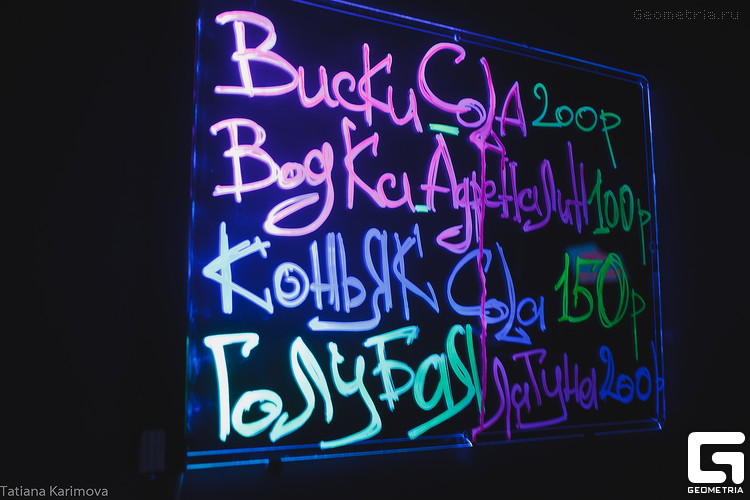 Geometria.ru
Виски Сола 200р
Водка Адреналин 100р
Коньяк Сола 150р
Голубая лагуна 200р
GEOMETRIA
Tatiana Karimova